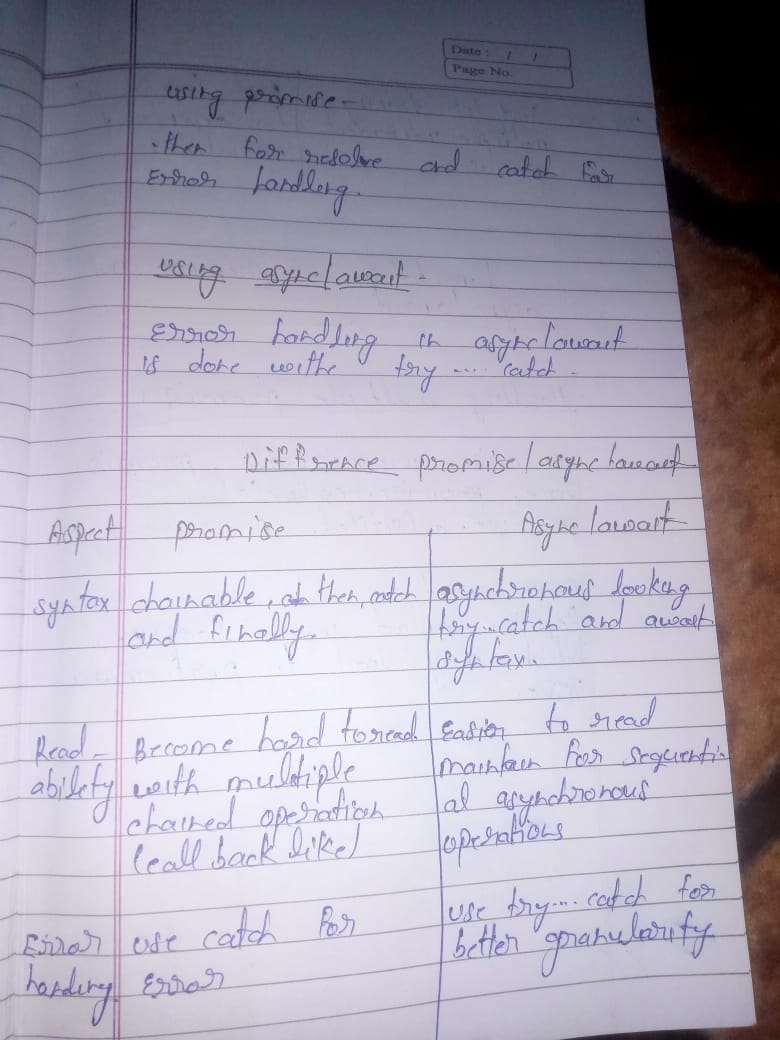 Date : / /
Page No.
using promise -
.then for resolve and catch for
Error handling.
using async/await -
Error handling in async/await
is done withe try ... catch -
Difference promise/async/await
Aspect promise Async/await
syntax chainable, then, catch
and finally.
asynchronous looking
try...catch and await
syntax.
Read-
ability
Become hard to read
with multiple
chained operation
(call back like)
Easier to read
maintain for sequenti-
al asynchronous
operations
Error
handing
use catch for
Error
use try.... catch for
better granularity